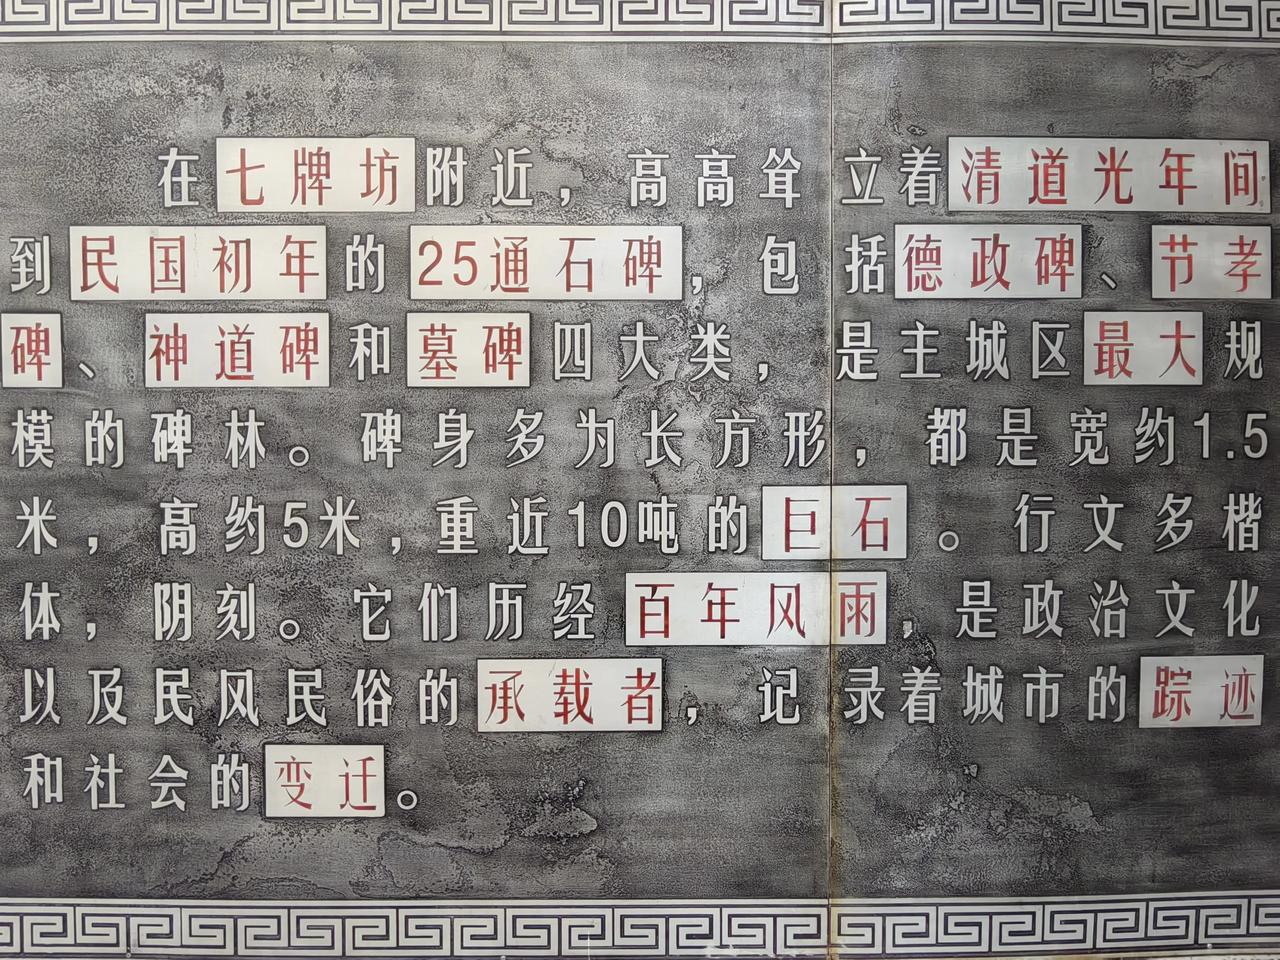 在七牌坊附近，高高耸立着清道光年间
到民国初年的25通石碑，包括德政碑、节孝
碑、神道碑和墓碑四大类，是主城区最大规
模的碑林。碑身多为长方形，都是宽约1.5
米，高约5米，重近10吨的巨石。行文多楷
体，阴刻。它们历经百年风雨，是政治文化
以及民风民俗的承载者，记录着城市的踪迹
和社会的变迁。